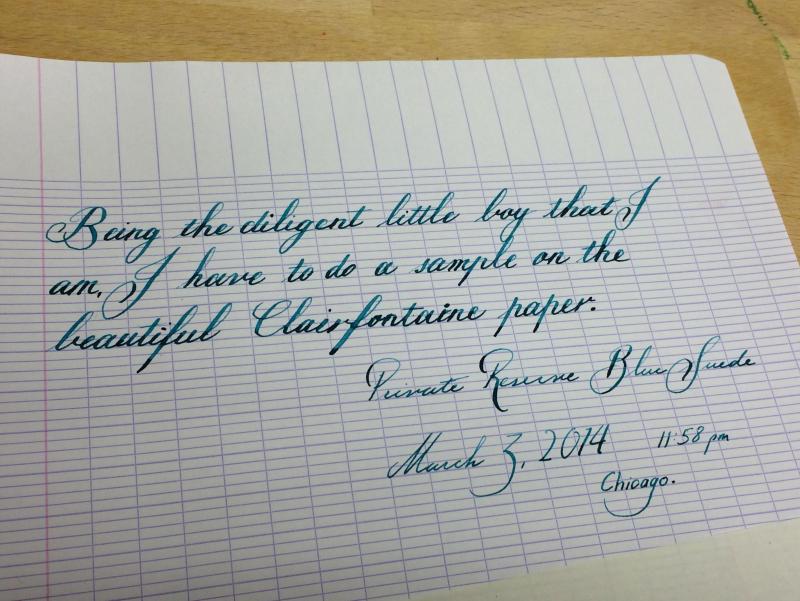 Being the diligent little boy that I
am, I have to do a sample on the
beautiful Clairfontaine paper.
Private Reserve Blue Suede
March 3, 2014 11:58 pm
Chicago.